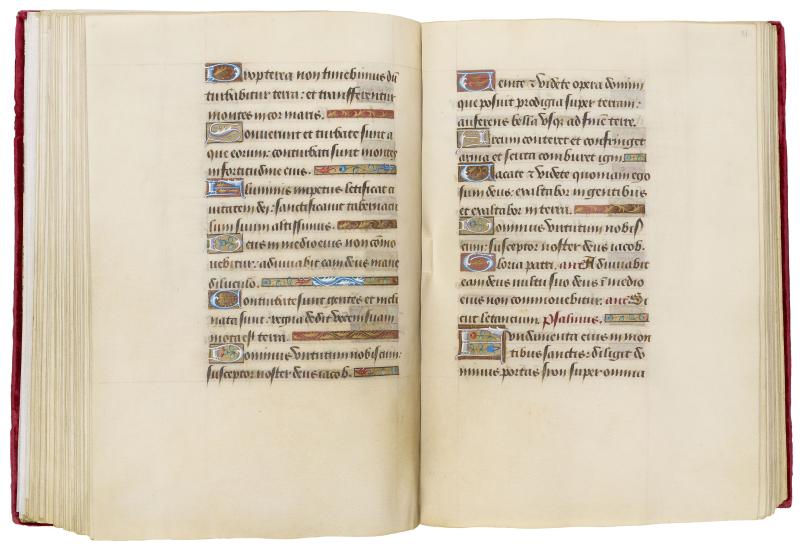 Propterea non timebimus dũ
turbabitur terra: et transferentur
montes in cor maris.
Sonuerunt et turbate sunt a
que eorum: conturbati sunt montes
in fortitudine eius.
Fluminis impetus letificat ci
uitatem dei: sanctificauit tabernacu
lum suum altissimus.
Deus in medio eius non cõmo
uebitur: adiuuabit eam deus mane
diluculo.
Conturbate sunt gentes et incli
nata sunt regna: dedit vocem suam
mota est terra.
Dominus virtutum nobiscum:
susceptor noster deus iacob.
Uenite & videte opera domini
que posuit prodigia super terram:
auferens bella vsq; ad finẽ terre.
Arcum conteret et confringet
arma et scuta comburet igni
Uacate & videte quoniam ego
sum deus: exaltabor in gentibus
et exaltabor in terra.
Dominus virtutum nobis
cum: susceptor noster deus iacob.
Gloria patri. ant Adiuuabit
eam deus vultu suo deus ĩ medio
eius non commouebitur. ant Si
cut letancium. Psalmus.
Fundamenta eius in mon
tibus sanctis: diligit do
minus portas syon super omnia